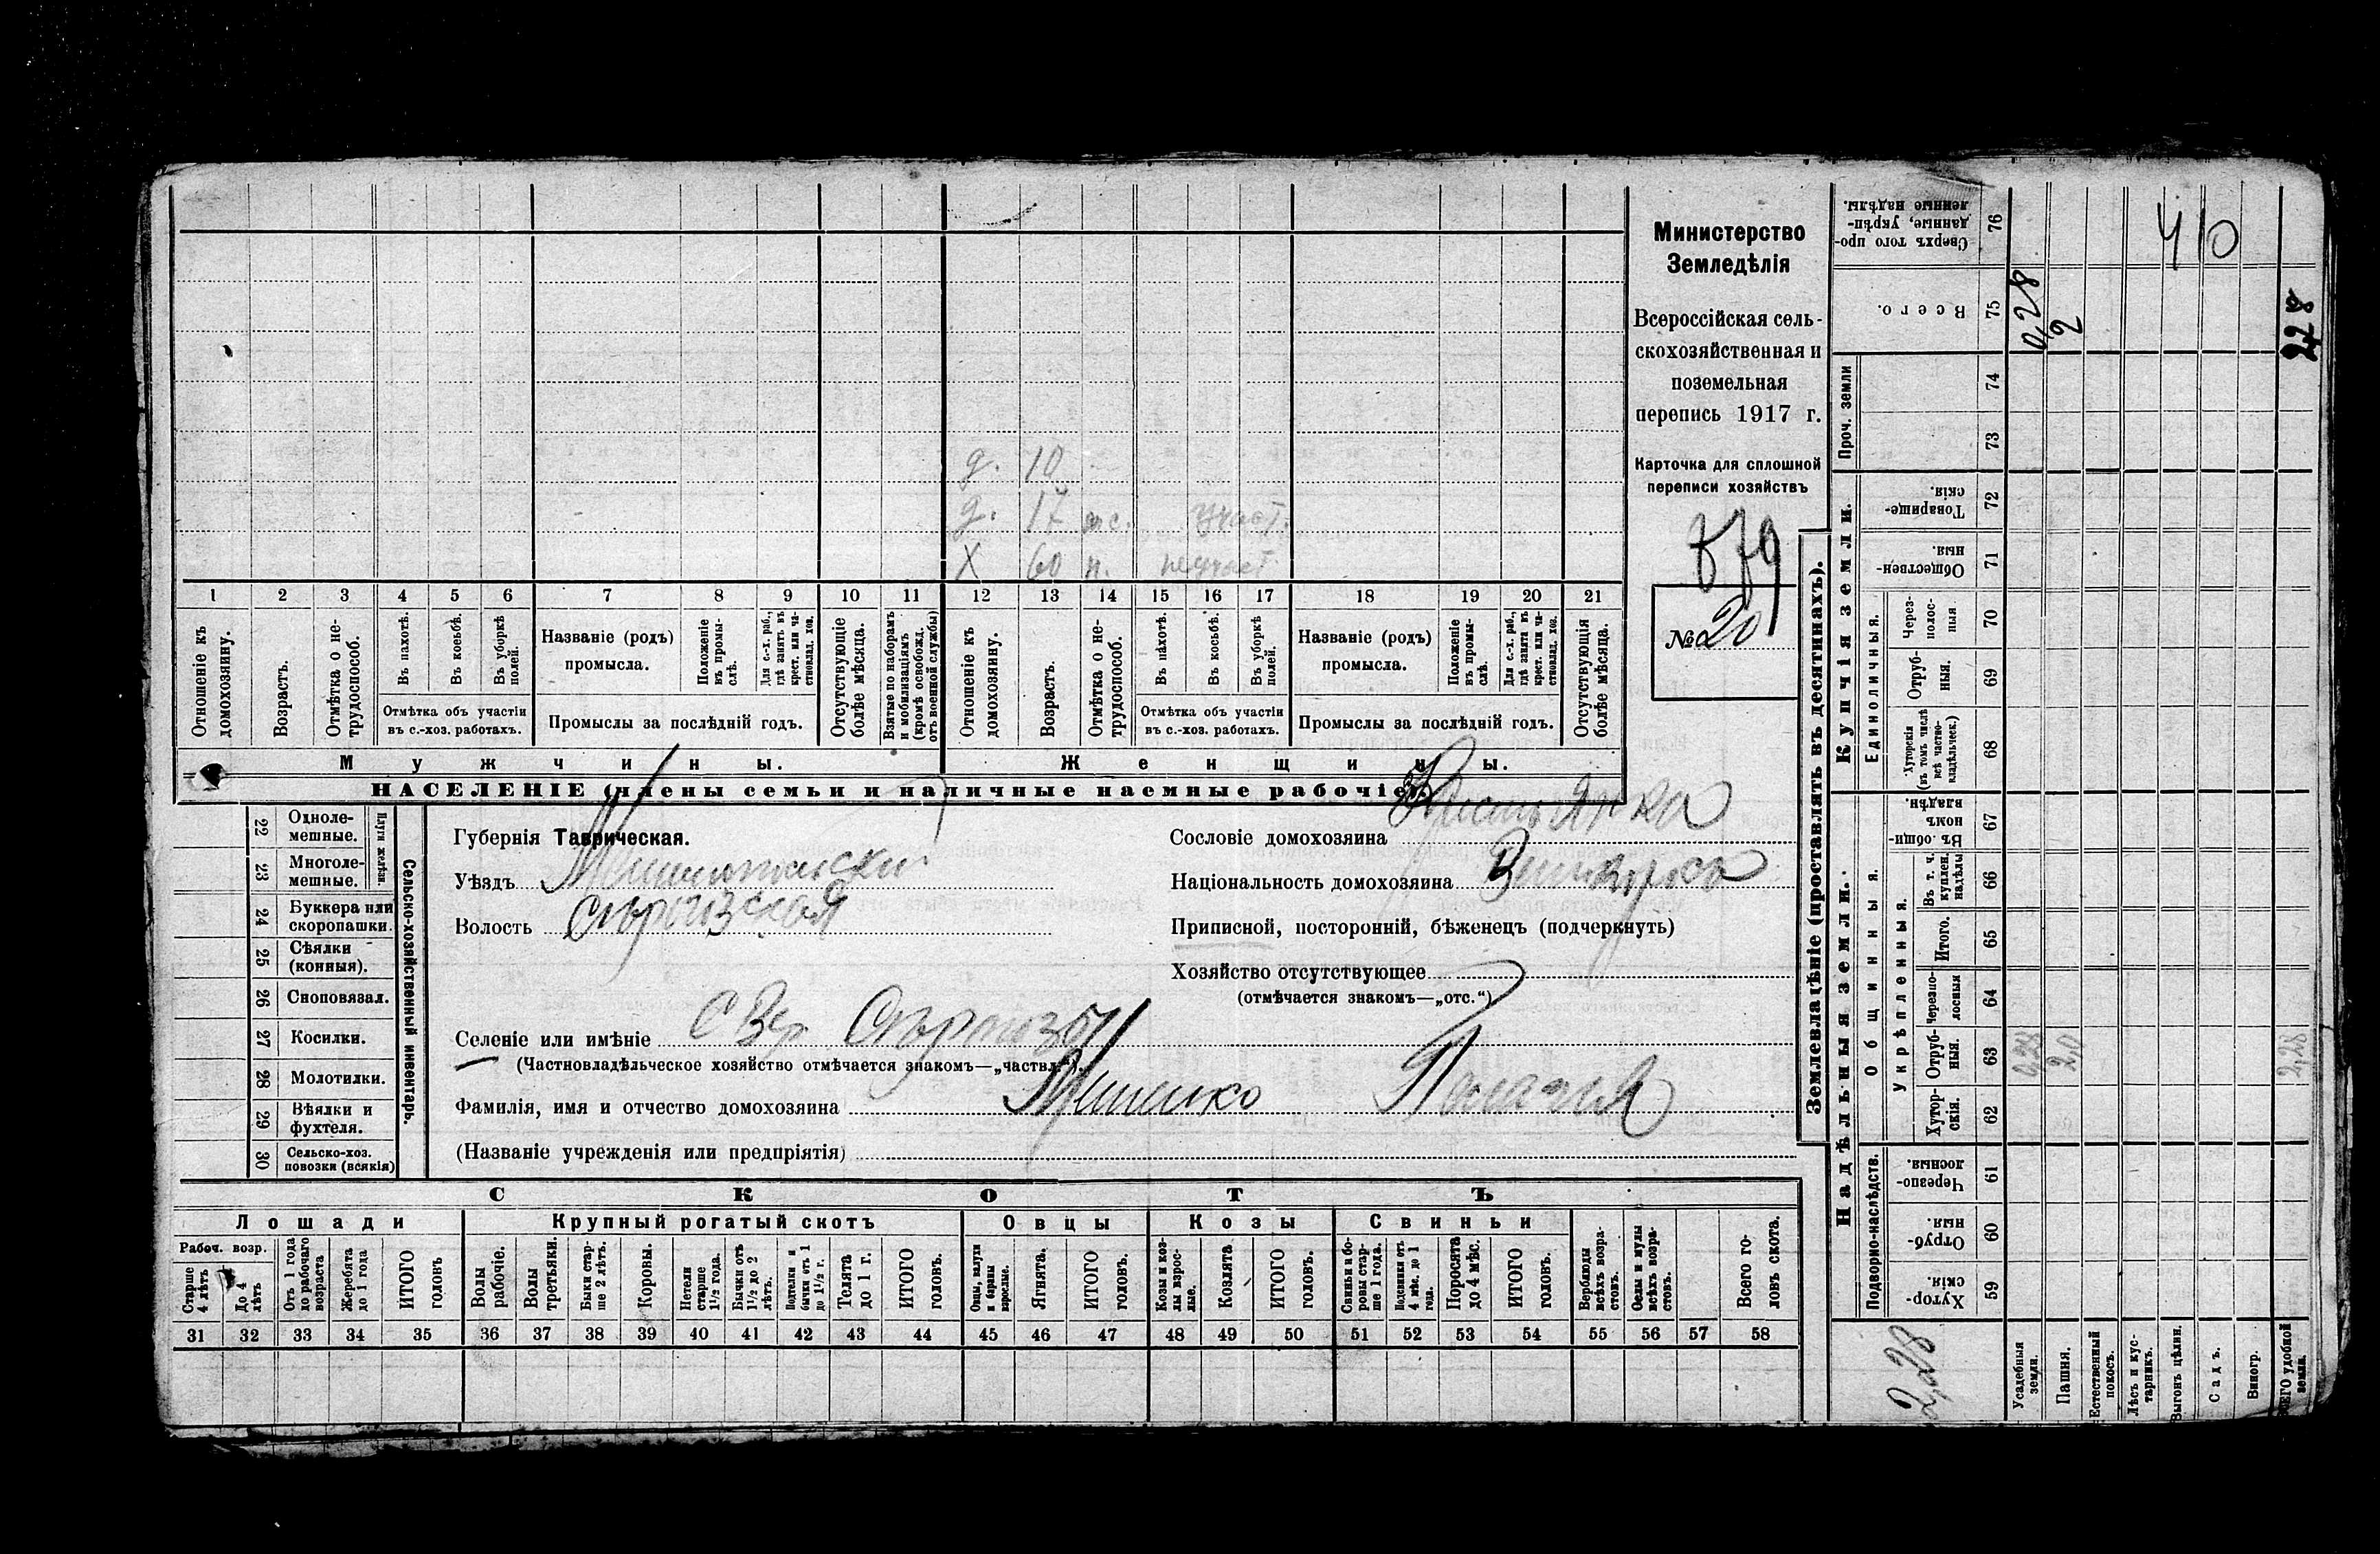 д. 10
д. 17 участ.
Х 60 н. неучаст.
1 2 3 4 5 6 7 8 9 10 11 12 13 14 15 16 17 18 19 20 21
Отношеніе къ домохозяину.
Возрастъ.
Отмѣтка о нетрудоспособ.
Въ пахотѣ.
Въ косьбѣ.
Въ уборкѣ полей.
Отмѣтка объ участіи
въ с.-хоз. работахъ.
Названіе (родъ)
промысла.
Положеніе въ промыслѣ.
Для с.-х. раб., гдѣ занятъ въ крест. или частновлад. хоз.
Промыслы за послѣдній годъ.
Отсутствующіе болѣе мѣсяца.
Взятые по наборамъ и мобилизаціямъ (кромѣ освобожд. отъ военной службы)
Отношеніе къ домохозяину.
Возрастъ.
Отмѣтка о нетрудоспособ.
Въ пахотѣ.
Въ косьбѣ.
Въ уборкѣ полей.
Отмѣтка объ участіи
въ с.-хоз. работахъ.
Названіе (родъ)
промысла.
Положеніе въ промыслѣ.
Для с.-х. раб., гдѣ занята въ крест. или частновлад. хоз.
Промыслы за послѣдній годъ.
Отсутствующія болѣе мѣсяца.
Мужчины.
Женщины.
НАСЕЛЕНІЕ (члены семьи и наличные наемные рабочіе).
Министерство
Земледѣлія
Всероссійская сель-
скохозяйственная и
поземельная
перепись 1917 г.
Карточка для сплошной
переписи хозяйствъ
№ 20
22 Однолемешные.
23 Многолемешные.
Плуги желѣзн.
24 Буккера или скоропашки.
25 Сѣялки (конныя).
26 Сноповязал.
27 Косилки.
28 Молотилки.
29 Вѣялки и фухтеля.
30 Сельско-хоз. повозки (всякія)
Сельско-хозяйственный инвентарь.
Губернія Таврическая.
Уѣздъ
Волость
Селеніе или имѣніе
(Частновладѣльческое хозяйство отмѣчается знакомъ—„частвл.“).
Фамилія, имя и отчество домохозяина
(Названіе учрежденія или предпріятія)
Сословіе домохозяина Крестьянка
Національность домохозяина
Приписной, посторонній, бѣженец (подчеркнуть)
Хозяйство отсутствующее
(отмѣчается знакомъ—„отс.“)
СКОТЪ
Лошади
Крупный рогатый скотъ
Овцы
Козы
Свиньи
Рабоч. возр.
Старше 4 лѣтъ
До 4 лѣтъ
Отъ 1 года до рабочаго возраста
Жеребята до 1 года
ИТОГО головъ
Волы рабочіе.
Волы третьяки.
Быки старше 2 лѣтъ.
Коровы.
Нетели старше 1½ года.
Бычки отъ 1½ до 2 лѣтъ.
Подтелки и бычки отъ 1 до 1½ г.
Телята до 1 г.
ИТОГО головъ.
Овцы, валухи и бараны взрослые.
Ягнята.
ИТОГО головъ.
Козы и козлы взрослые.
Козлята
ИТОГО головъ.
Свиньи и боровы старше 1 года.
Подсвинки отъ 4 мѣс. до 1 года.
Поросята до 4 мѣс.
ИТОГО головъ.
Верблюды всѣхъ возрастовъ.
Ослы и мулы всѣхъ возрастовъ.
Всего головъ скота.
31 32 33 34 35 36 37 38 39 40 41 42 43 44 45 46 47 48 49 50 51 52 53 54 55 56 57 58
Землевладѣніе (проставлять въ десятинахъ).
Надѣльныя земли.
Купчія земли.
Проч. земли
Подворно-наслѣдств.
Общинныя.
Укрѣпленныя.
Единоличныя.
Сверхъ того проданные, укрѣпленные надѣлы. 76
Всего. 75
74
73
Товарищескія. 72
Общественныя. 71
Черезполосныя 70
Отрубныя. 69
Хуторскія (въ томъ числѣ всѣ частновладѣльческ.) 68
Въ общинномъ владѣн. 67
Въ т. ч. куплен. надѣлы 66
Итого. 65
Черезполосныя 64
Отрубныя. 63
Хуторскія. 62
Черезполосныя. 61
Отрубныя. 60
Хуторскія. 59
2,28
Усадебныя земли. 0,28 0,28
Пашня. 2,0 2
Естественный покосъ.
Лѣсъ и кустарникъ.
Выгонъ цѣлин.
Садъ.
Виногр.
ВСЕГО удобной земли. 2,28 228